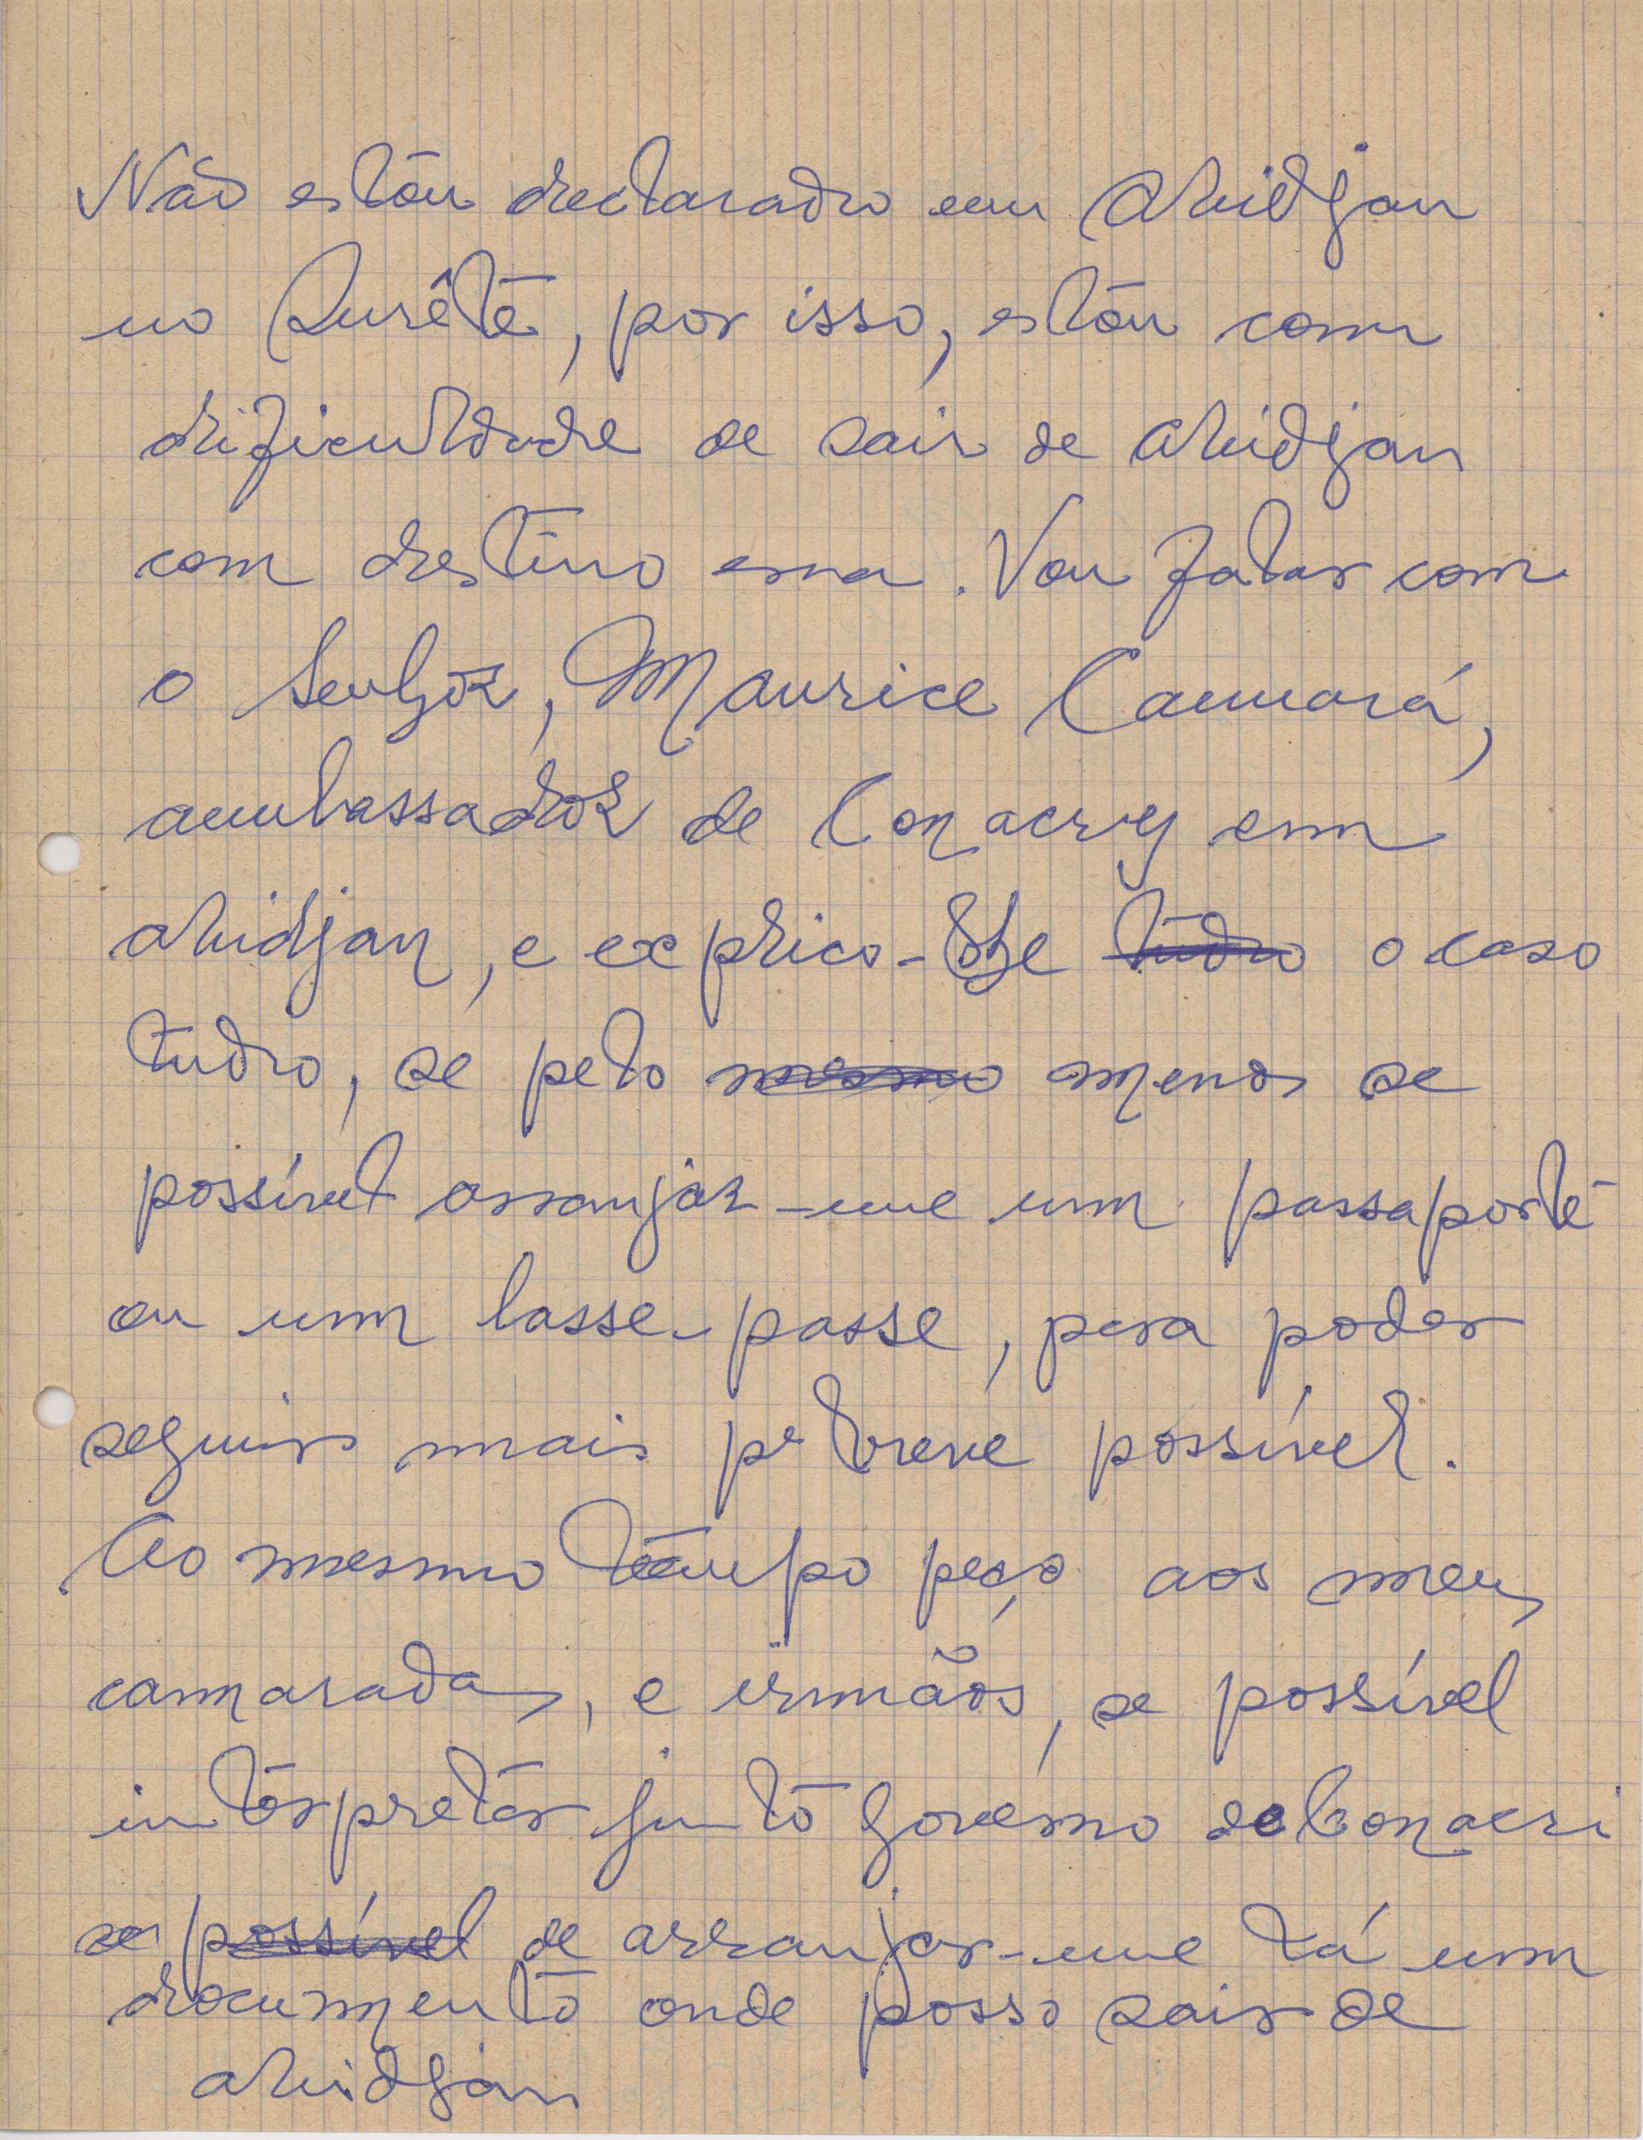 Não estou declarado em Abidjan
no Surêté, por isso, estou com
dificuldade de sair de Abidjan
com destino essa. Vou falar com
o Senhor, Maurice Camará,
ambassador de Conacry em
abidjan, e explico-lhe tudo o caso
tudo, se pelo mesmo menos se
possível arranjar-me um passaporte
ou um lasse-passe, para poder
seguir mais p. breve possível.
Ao mesmo tempo peço aos meus
camaradas, e irmãos, se possível
interpretar junto governo de Conacri
se possível de arranjar-me lá um
documento onde posso sair de
abidjan